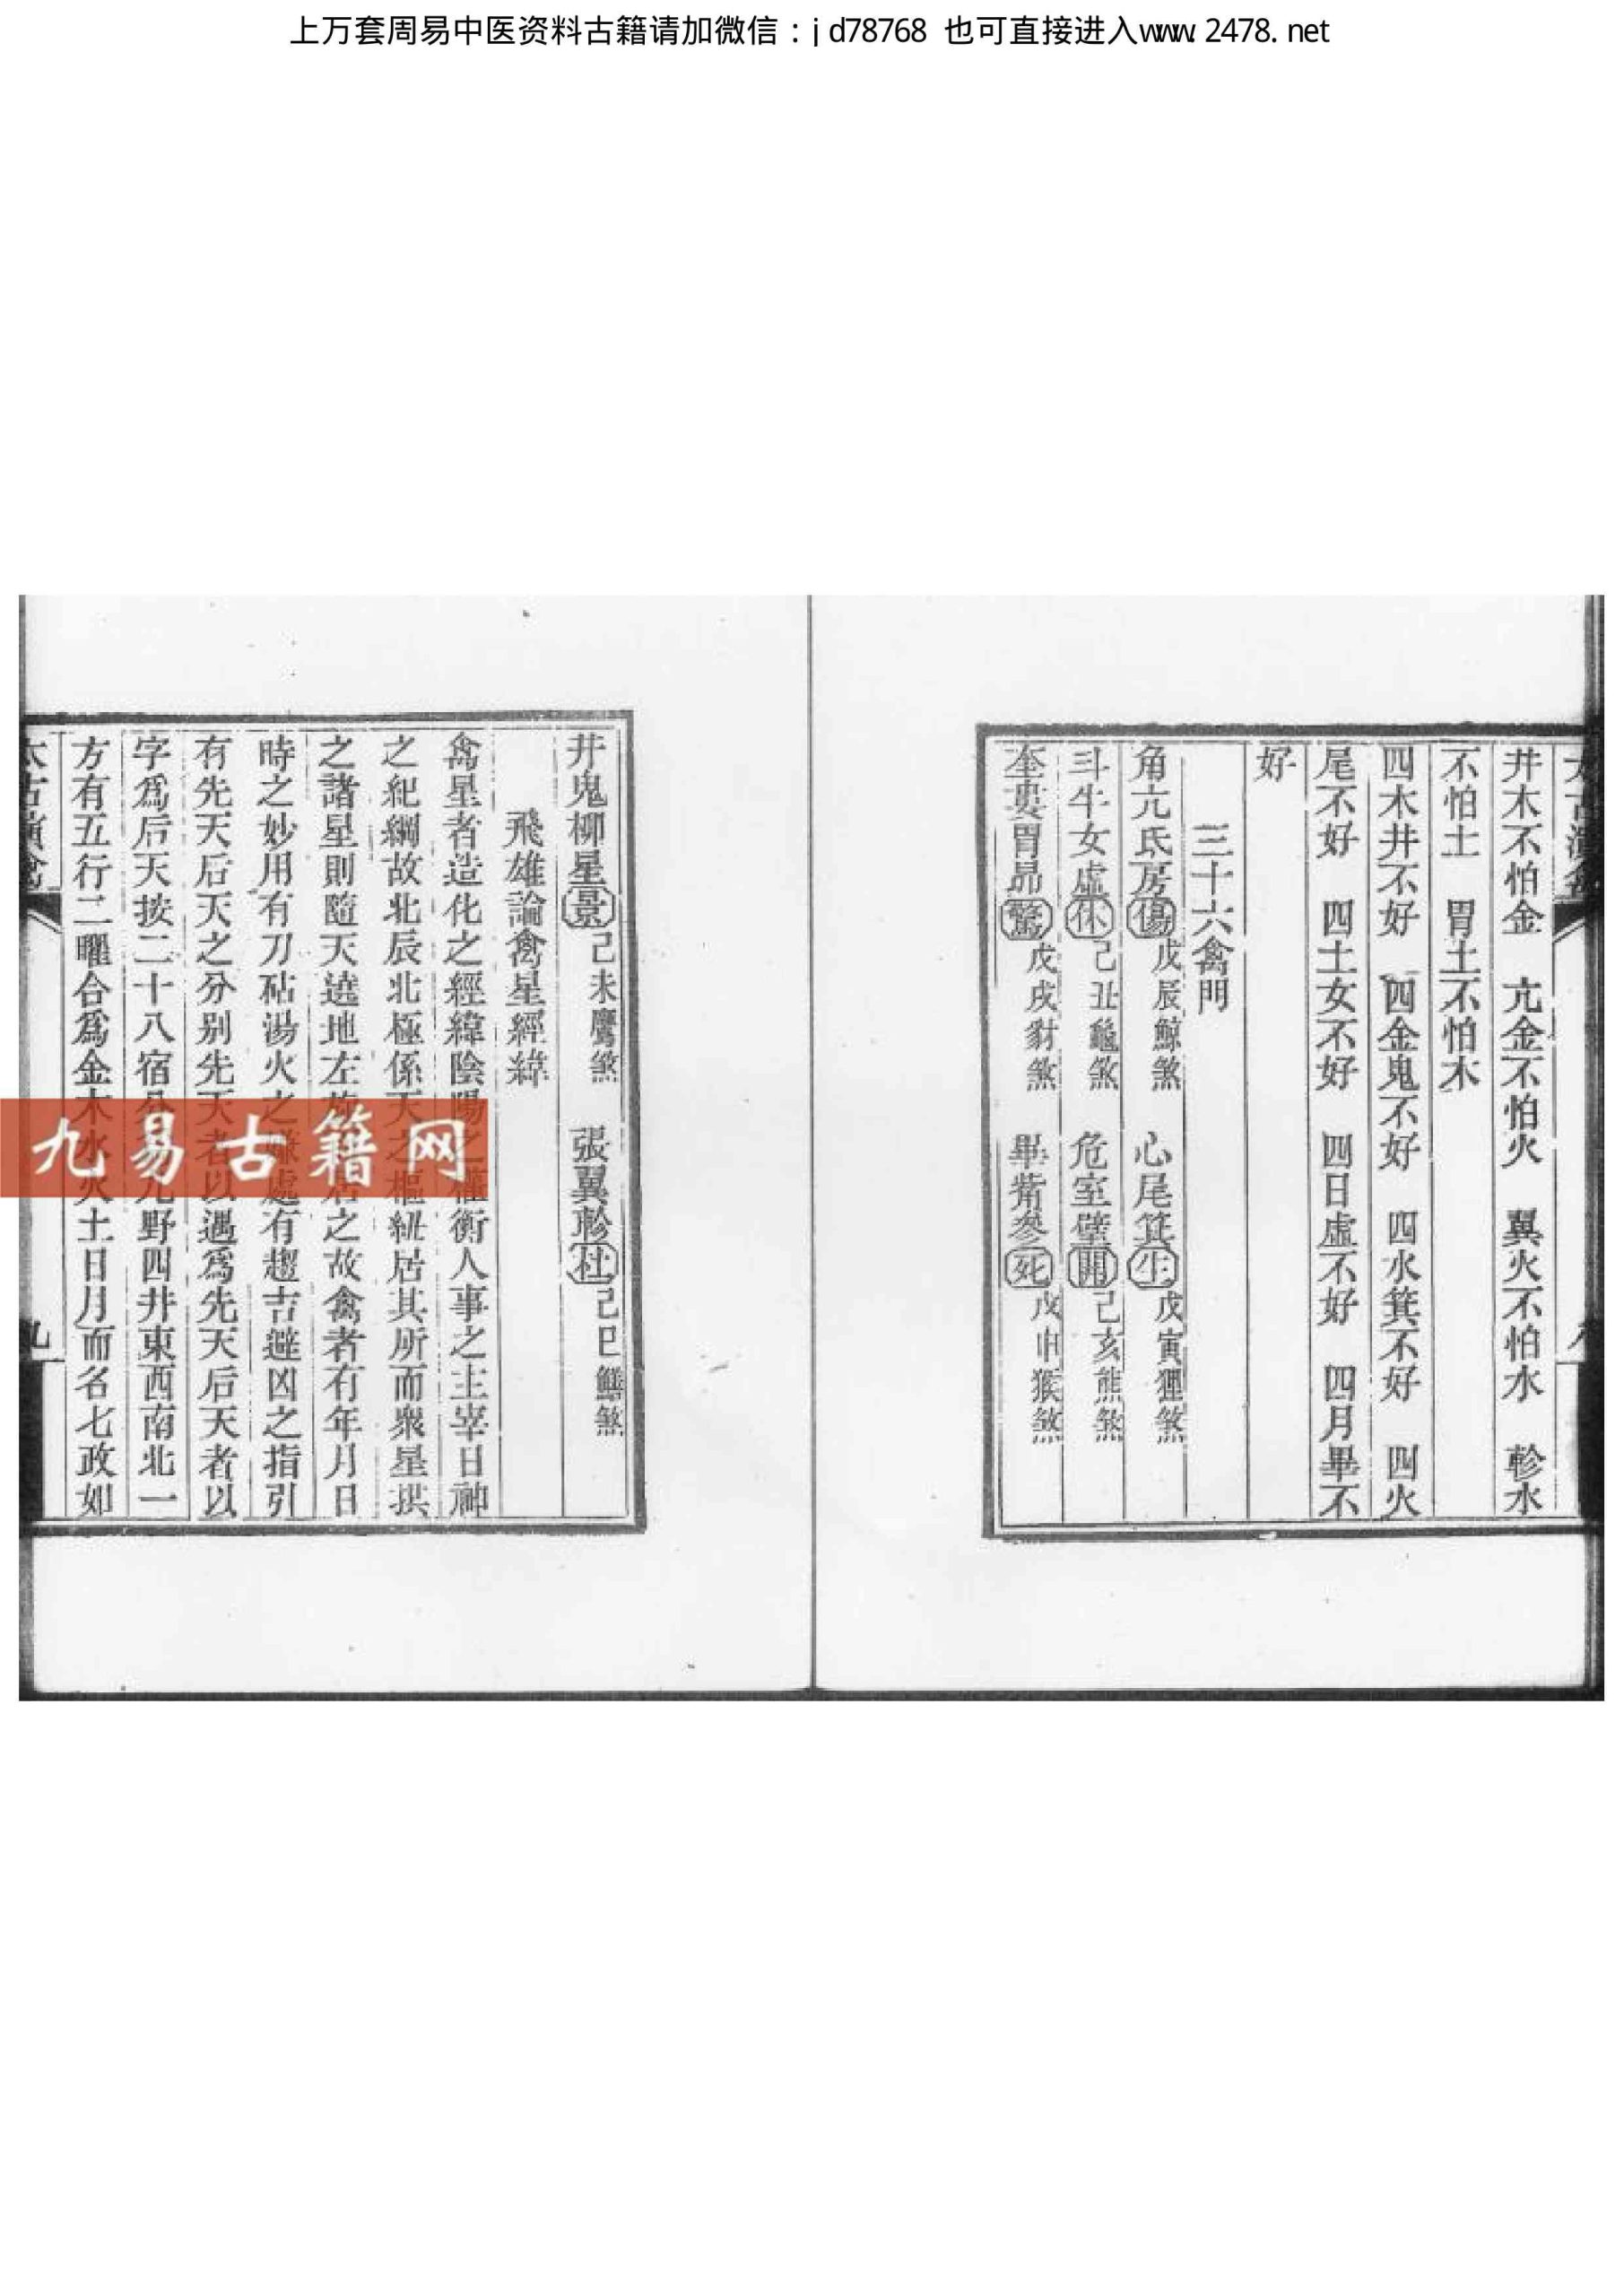 上万套周易中医资料古籍请加微信：jd78768 也可直接进入www.2478.net
井木不怕金 亢金不怕火 翼火不怕水 軫水
不怕土 胃土不怕木
四木井不好 四金鬼不好 四水箕不好 四火
尾不好 四土女不好 四日虛不好 四月畢不
好
三十六禽門
角亢氐房傷戊辰鯨煞 心尾箕生戊寅狸煞
斗牛女虛休己丑龜煞 危室壁開己亥熊煞
奎婁胃昴驚戊戌豺煞 畢觜參死戊申猴煞
八
井鬼柳星景己未鷹煞 張翼軫杜己巳鱔煞
飛雄論禽星經緯
禽星者造化之經緯陰陽之權衡人事之主宰日神
之紀綱故北辰北極係天之樞紐居其所而衆星拱
之諸星則隨天遶地左居之故禽者有年月日
時之妙用有刀砧湯火之嫌處有趨吉避凶之指引
有先天后天之分别先天者以遇爲先天后天者以
字爲后天按二十八宿分九野四井東西南北一
方有五行二曜合爲金木水火土日月而名七政如
太古演禽
九
九易古籍网